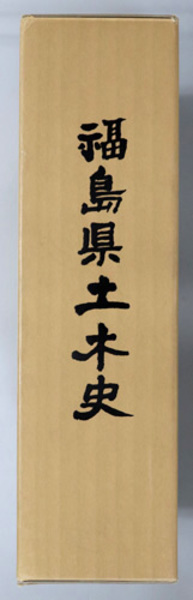 福島県土木史